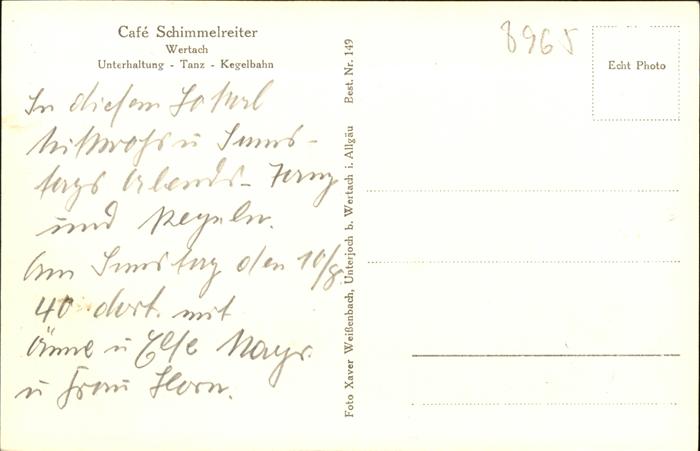 Café Schimmelreiter
Wertach
Unterhaltung - Tanz - Kegelbahn
In diesem Lokal
Mittwochs u Sams-
tags Abends - Tanz
und Kegeln.
Am Samstag den 10/8
40 dort. mit
Änne u Else Mayr.
u Frau Horn.
Foto Xaver Weißenbach, Unterjoch b. Wertach i. Allgäu Best. Nr. 149
8965
Echt Photo